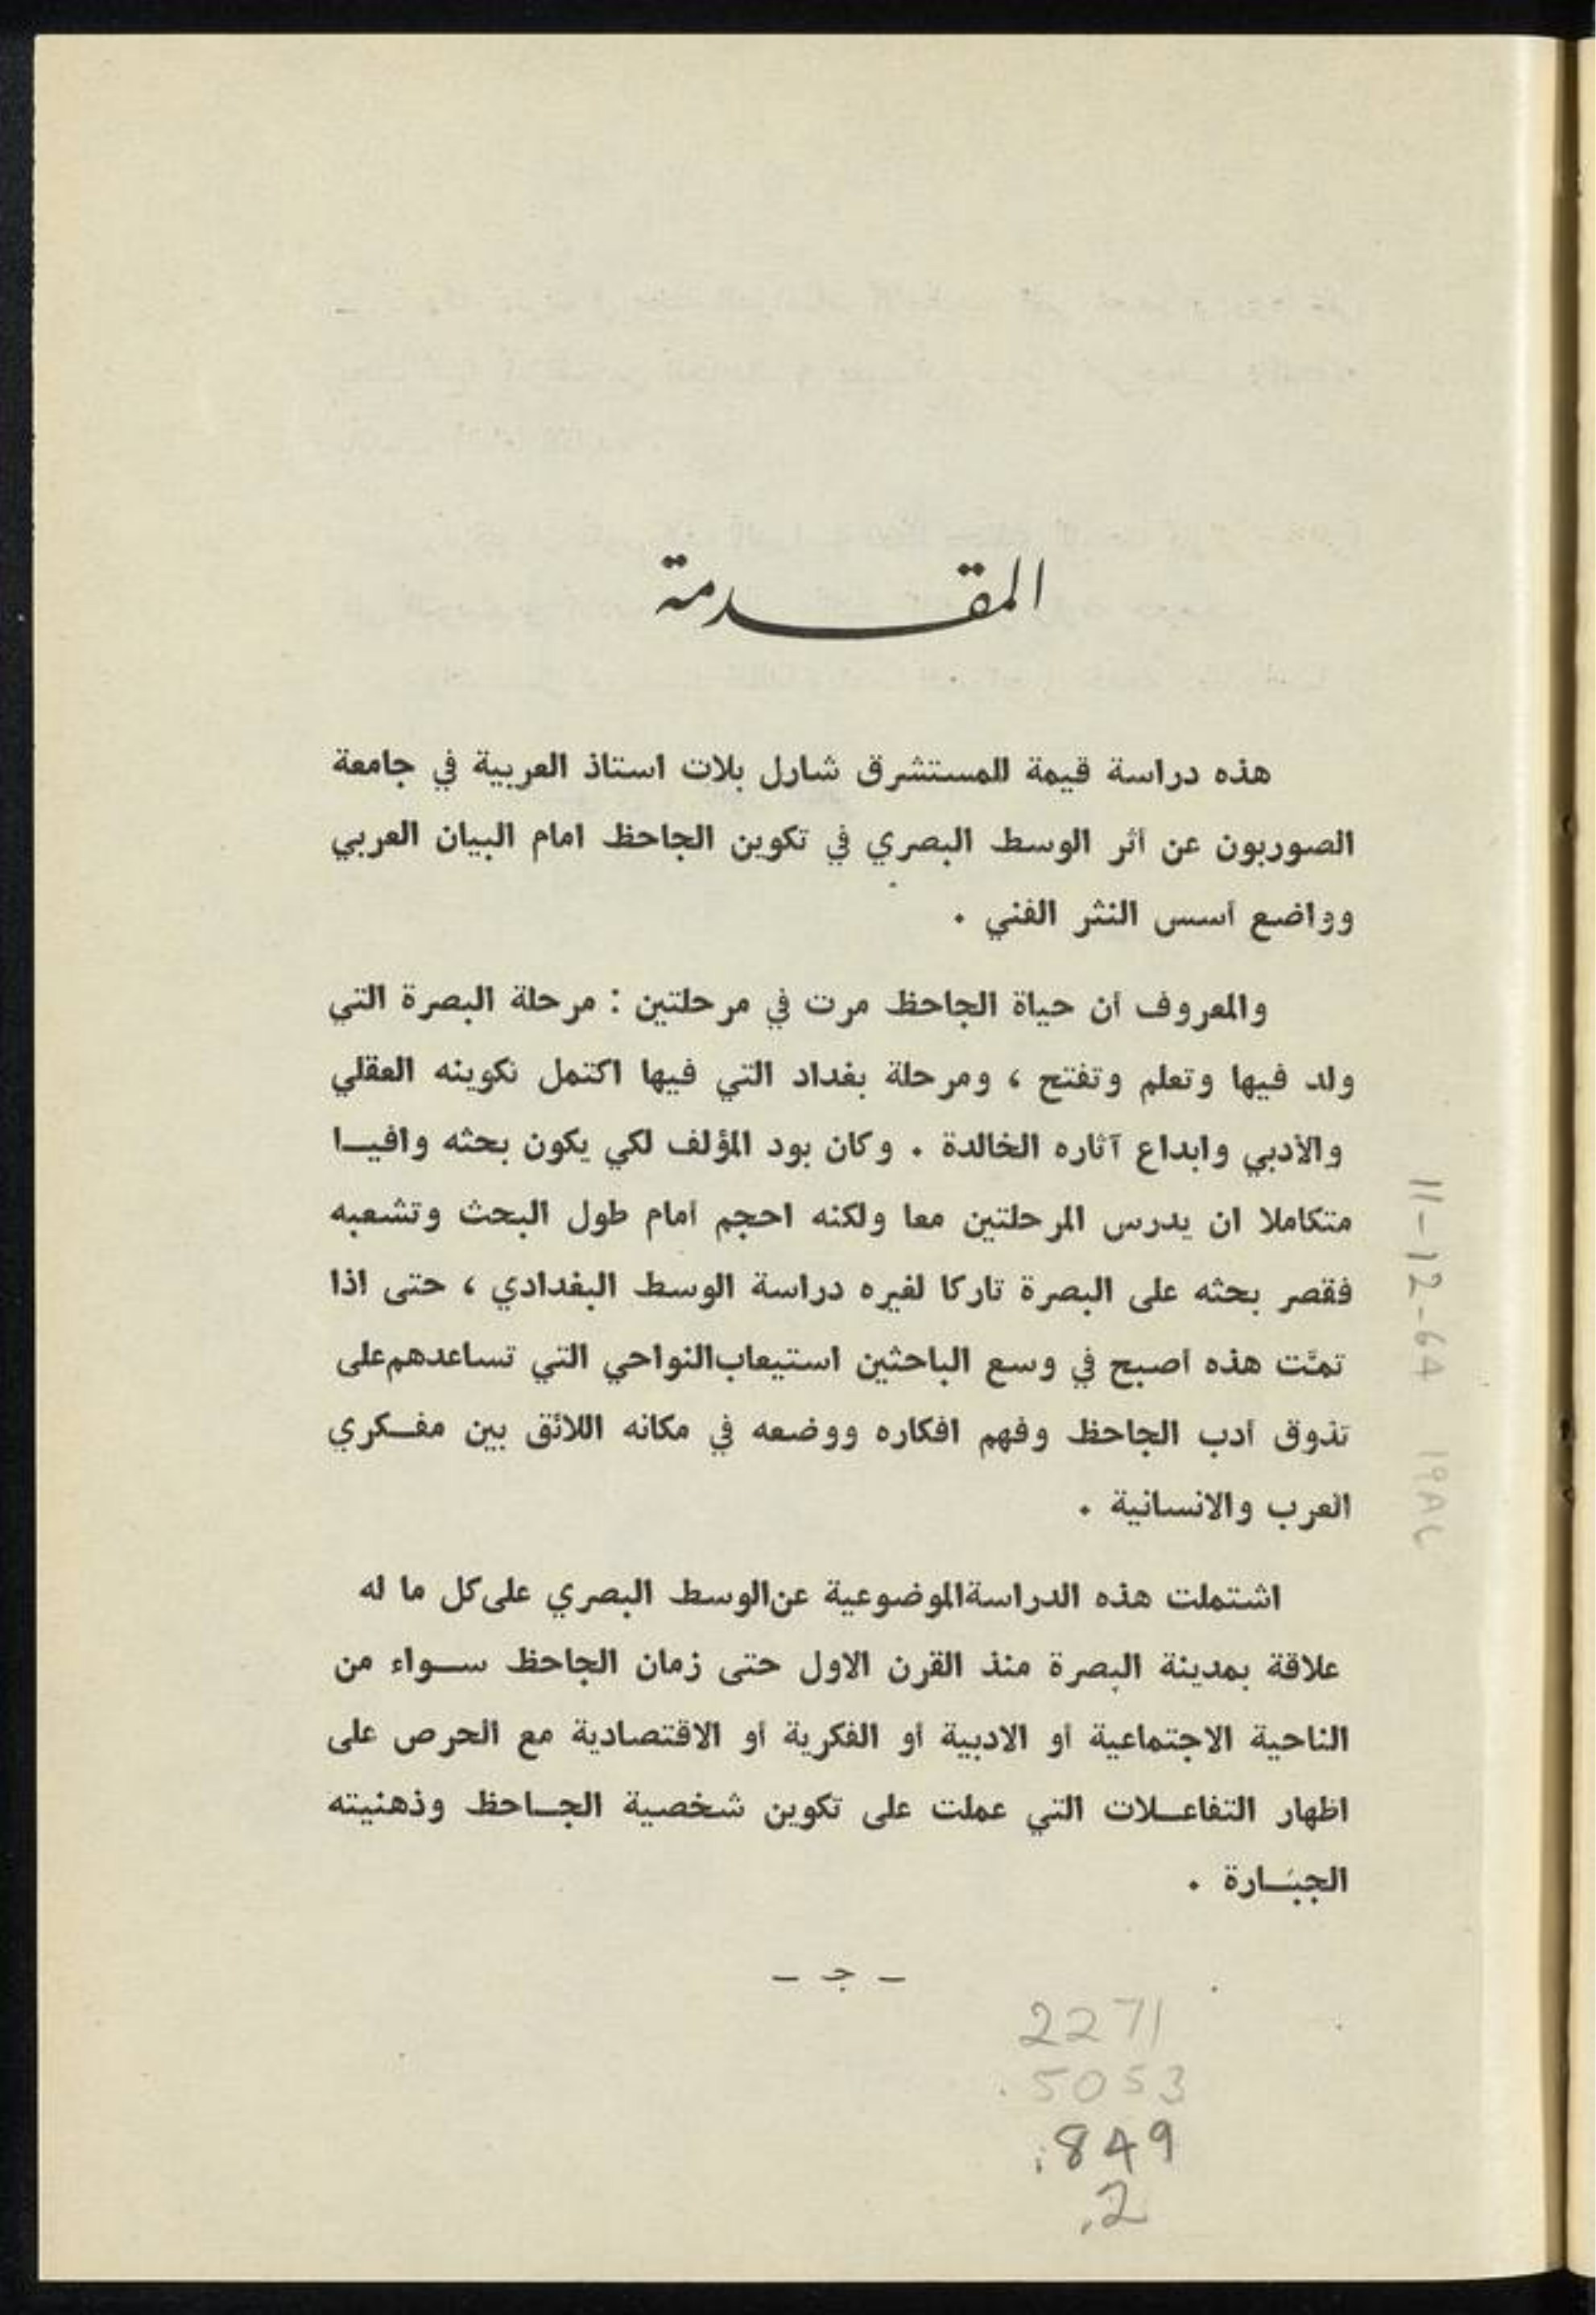 المقدمة
هذه دراسة قيمة للمستشرق شارل بلات استاذ العربية في جامعة
الصوربون عن أثر الوسط البصري في تكوين الجاحظ امام البيان العربي
وواضع أسس النثر الفني .
والمعروف أن حياة الجاحظ مرت في مرحلتين : مرحلة البصرة التي
ولد فيها وتعلم وتفتح ، ومرحلة بغداد التي فيها اكتمل تكوينه العقلي
والأدبي وابداع آثاره الخالدة . وكان بود المؤلف لكي يكون بحثه وافيا
متكاملا ان يدرس المرحلتين معا ولكنه احجم أمام طول البحث وتشعبه
فقصر بحثه على البصرة تاركا لغيره دراسة الوسط البغدادي ، حتى اذا
تمّت هذه أصبح في وسع الباحثين استيعاب النواحي التي تساعدهم على
تذوق أدب الجاحظ وفهم افكاره ووضعه في مكانه اللائق بين مفكري
العرب والانسانية .
اشتملت هذه الدراسة الموضوعية عن الوسط البصري على كل ما له
علاقة بمدينة البصرة منذ القرن الاول حتى زمان الجاحظ سواء من
الناحية الاجتماعية أو الادبية أو الفكرية أو الاقتصادية مع الحرص على
اظهار التفاعلات التي عملت على تكوين شخصية الجاحظ وذهنيته
الجبّارة .
- ج -
2271
.5053
.849
.2
11-12-64